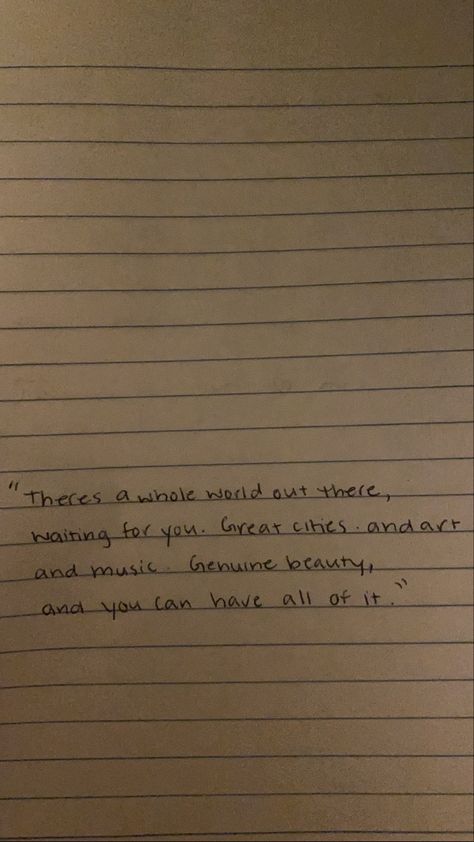 "Theres a whole world out there,
waiting for you. Great cities. and art
and music. Genuine beauty,
and you can have all of it."